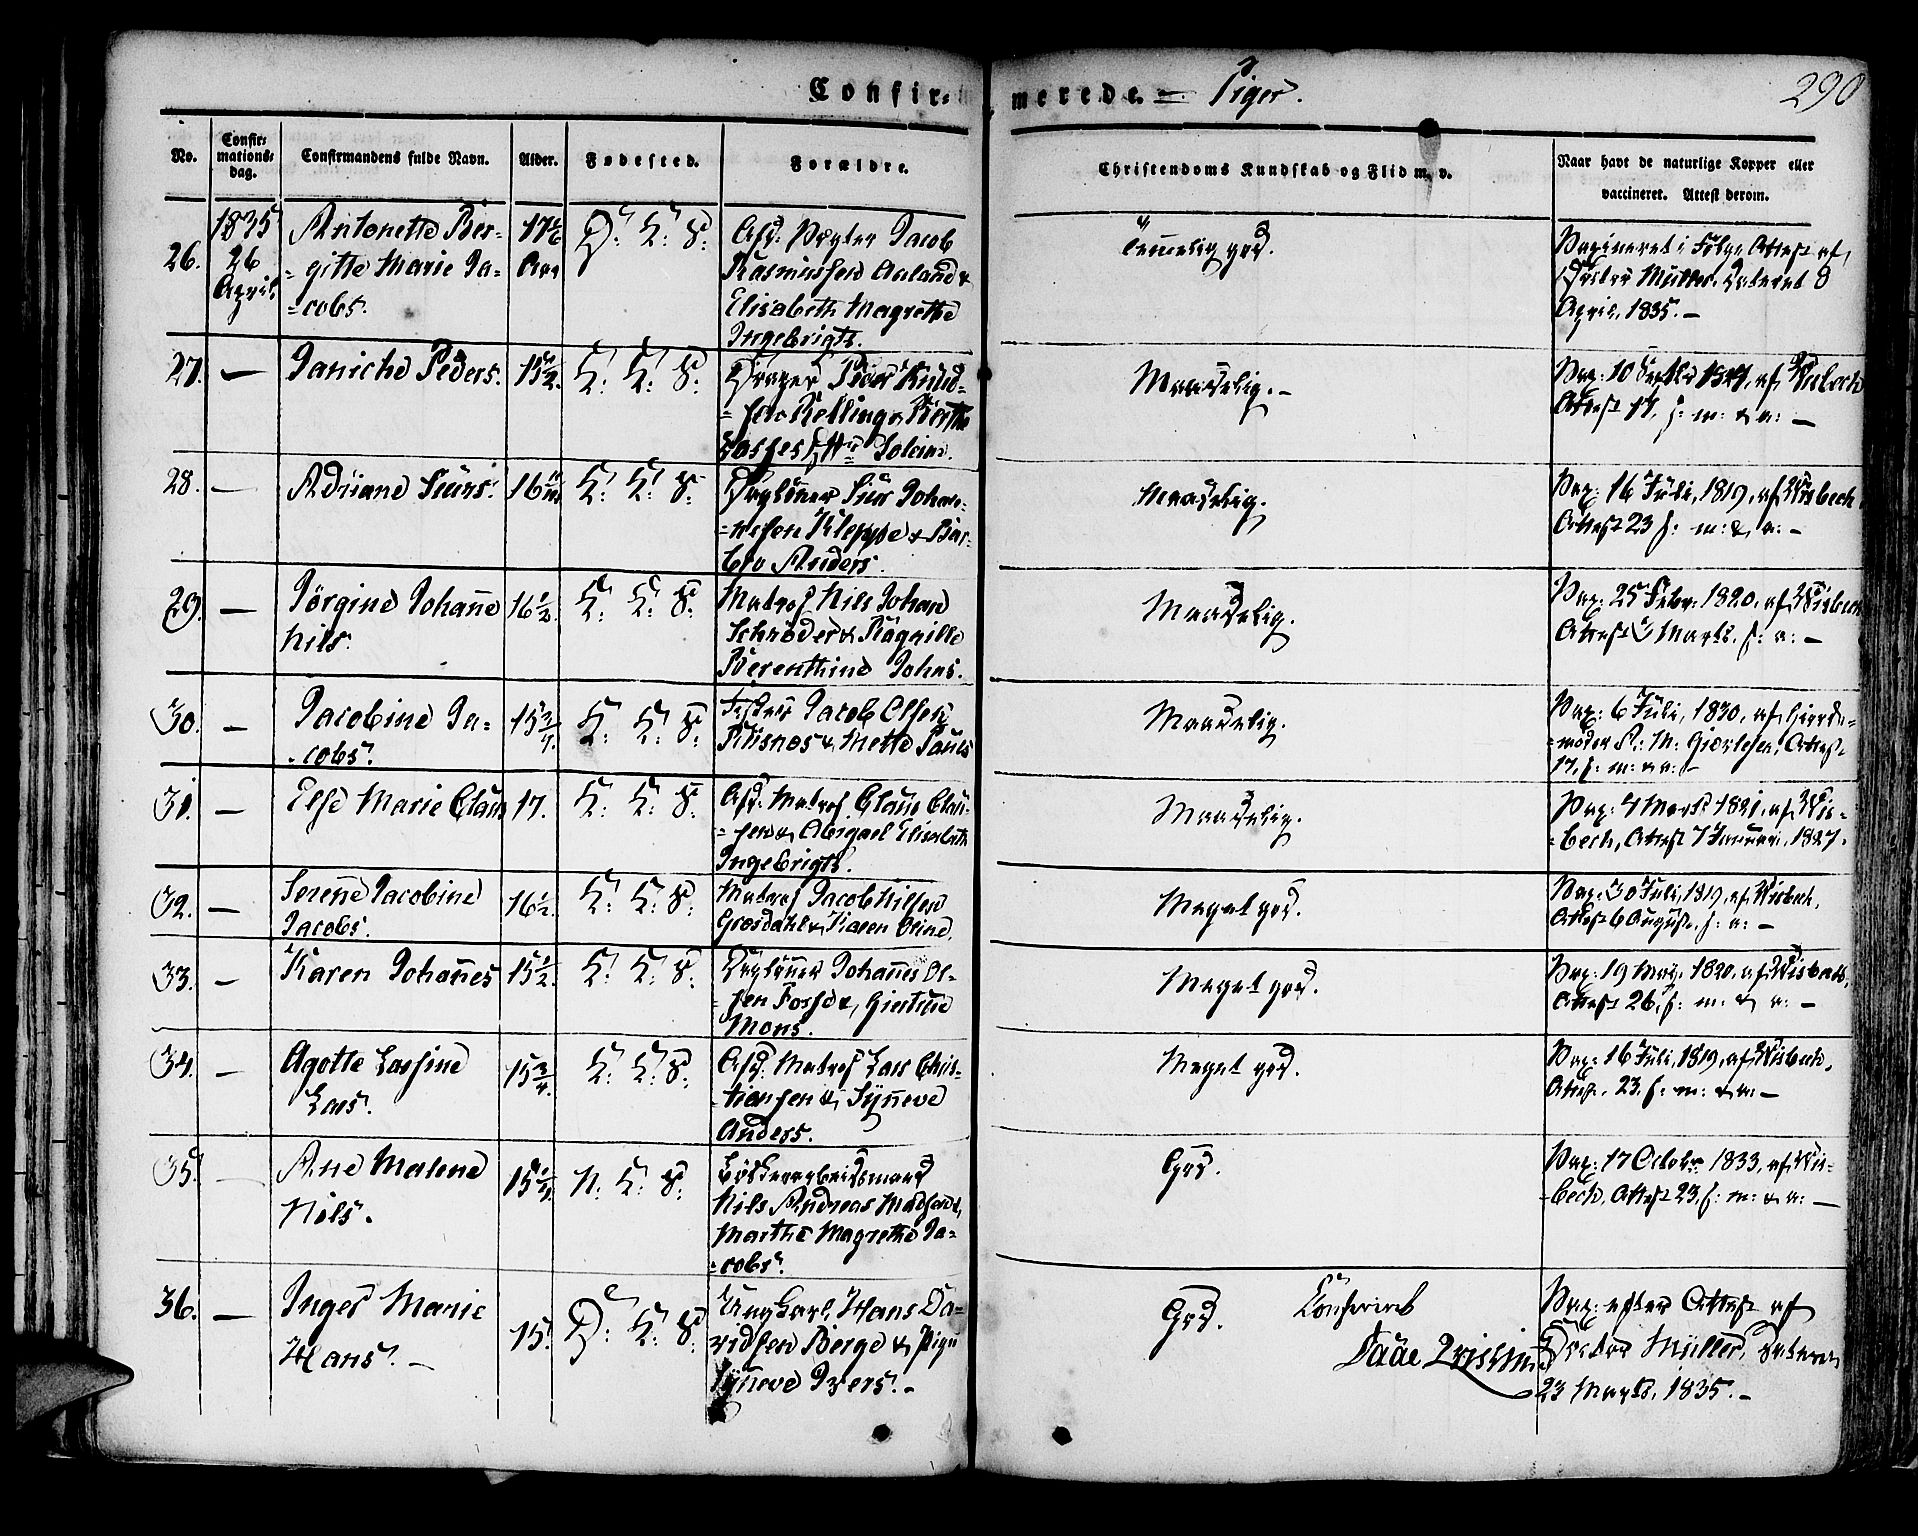 Confir- merede. = Piger.
290
No.
Confir-
mations-
dag.
Confirmandens fulde Navn.
Alder.
Fødested.
Forældre.
Christendoms Kundskab og Flid m. v.
Naar havt de naturlige Kopper eller
vaccineret. Attest derom.
26.
1835
26
April.
Antonette Ber-
gitte Marie Ja-
=cobs.
D: K: S:
Afd: Jacob
Rasmussen Aaland &
Elisabeth Magrethe
Ingebrigts.
Temmelig god.
Vaxineret i Følge Attest af
Doctor Müller, dateret 8
April, 1835. —
27. —
Janiche Peders.
15½.
K: K: S:
Peder Knud-
=sen Kelling &
Maadelig. —
Vax: 10 af Wisbech
Attest 17, s: m: & a: —
28. —
Adriane Siurs.
16
K: K: S:
Dagl. Siur Johan-
=nesen Kleppe & Bar-
bro Anders.
Maadelig.
Vax: 16 Juli, 1819, af Wisbech
Attest 23 s: m: & a: —
29. —
Jørgine Johanne
Nils.
16½.
K: K: S:
Matros Nils Johan
Schrøder & Ragnille
Berenthine Johns.
Maadelig.
Vax: 25 Febr. 1820, af Wisbech
Attest Marts. s: a: —
30. —
Jacobine Ja-
cobs.
15¾.
K: K: S:
Fisker Jacob Olsen
& Mette Pauls
Maadelig.
Vax: 6 Juli, 1830, af Giorde-
=moder M: Attest
17, s: m: & a: —
31. —
Else Marie Claus
17.
K: K: S:
Afd: Matros Claus Clau-
=sen & Abigael Elisabeth
Ingebrigts.
Maadelig.
Vax: 4 Marts 1821, af Wis-
=bech, Attest 7 Januar, 1827.
32. —
Serenne Jacobine
Jacobs.
16½.
K: K: S:
Matros Jacob Nilsen
Grøsdahl & Karen
Meget god.
Vax: 30 Juli, 1819, af Wisbech,
Attest 6 August, s: a: —
33. —
Karen Johannes
15½.
K: K: S:
Dagl. Johannes Ol-
=sen Fosse &
Mons.
Meget god.
Vax: 19 Maÿ, 1820, af Wisbech,
Attest 26, s: m: & a: —
34. —
Agotte Lassine
Lars.
15¾.
K: K: S:
Afd: Matros Lars Chris-
=tiansen & Synneve
Anders.
Meget god.
Vax: 16 Juli, 1819, af Wisbech,
Attest. 23, s: m: & a: —
35. —
Ane Malene
Nils.
N: K: S:
Løskearbeidsmand
Nils Andreas Madsen &
Marthe Magrethe Ja-
=cobs.
God.
Vax: 17 Octobr 1833, af Wis-
=bech, Attest 23, s: m: & a: —
36. —
Inger Marie
Hans. —
15.
D: K: S:
Ung Karl, Hans Da-
vidsen Berge & Pige
Synneve Ivers. —
God.
Vax: efter Attest af
Doctor Müller, dateret
23 Marts, 1835. —